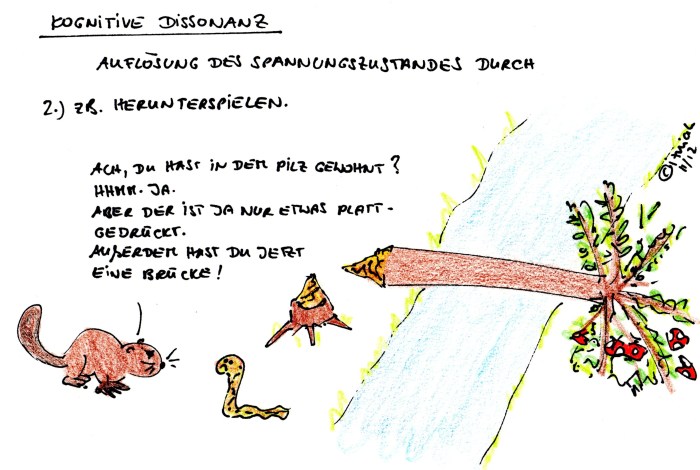 KOGNITIVE DISSONANZ
AUFLÖSUNG DES SPANNUNGSZUSTANDES DURCH
2.) ZB. HERUNTERSPIELEN.
ACH, DU HAST IN DEM PILZ GEWOHNT?
HHMM. JA.
ABER DER IST JA NUR ETWAS PLATT-
GEDRÜCKT.
AUßERDEM HAST DU JETZT
EINE BRÜCKE!
11/12